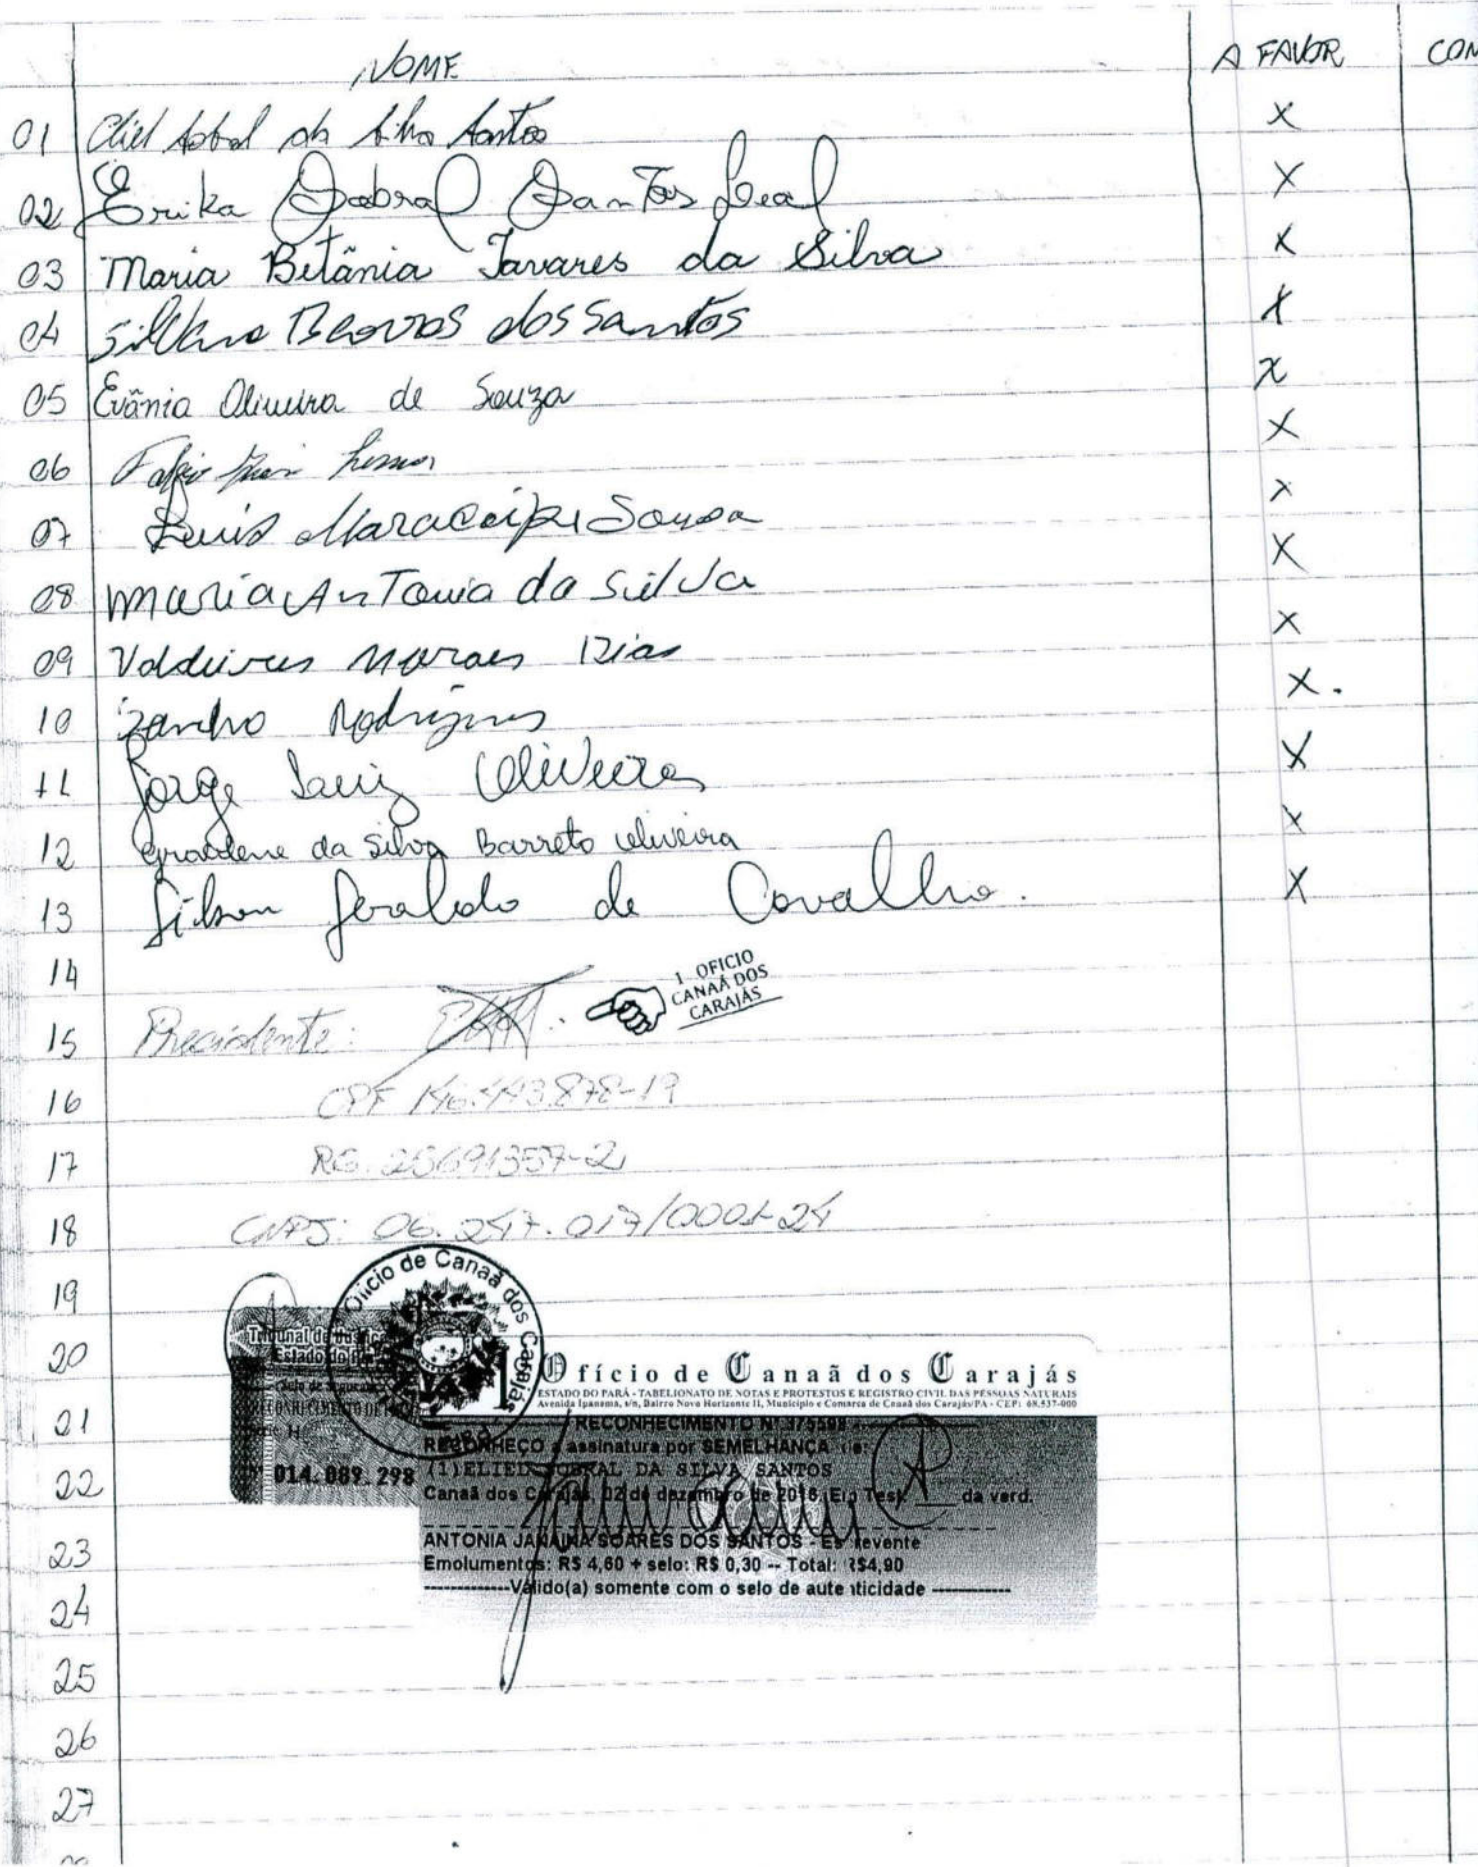 NOME A FAVOR CON
01 Eliel Sobral da Silva Santos X
02 Erika Sobral Santos Leal X
03 Maria Betânia Tavares da Silva X
04 Barros dos Santos X
05 Evânia Oliveira de Souza X
06 X
07 Luis Maracaipe Sousa X
08 Maria Antonia da Silva X
09 Moraes Dias X
10 Rodrigues X.
11 Jorge Luiz Oliveira X
12 da Silva Barreto Oliveira X
13 Gilson Geraldo de Carvalho. X
14
1 OFICIO
CANAÃ DOS
CARAJÁS
15 Precidente:
16 CPF 146.443.878-19
17 RG. 25691357-2
18 CNPJ: 06.247.017/0001-24
19
Ofício de Canaã dos Carajás
20 Tribunal de Justiça
Estado do
Ofício de Canaã dos Carajás
ESTADO DO PARÁ - TABELIONATO DE NOTAS E PROTESTOS E REGISTRO CIVIL DAS PESSOAS NATURAIS
Avenida Ipanema, s/n, Bairro Novo Horizonte II, Município e Comarca de Canaã dos Carajás/PA - CEP: 68.537-000
21 RECONHECIMENTO DE
RECONHECIMENTO Nº 375598
RECONHEÇO a assinatura por SEMELHANÇA de:
22 014.089.298 (1)ELIEL SOBRAL DA SILVA SANTOS
Canaã dos Carajás, 02 de dezembro de 2016. Em Test. ____ da verd.
23 ANTONIA JANAINA SOARES DOS SANTOS - Escrevente
Emolumentos: R$ 4,60 + selo: R$ 0,30 -- Total: R$4,90
------------Válido(a) somente com o selo de autenticidade ------------
24
25
26
27